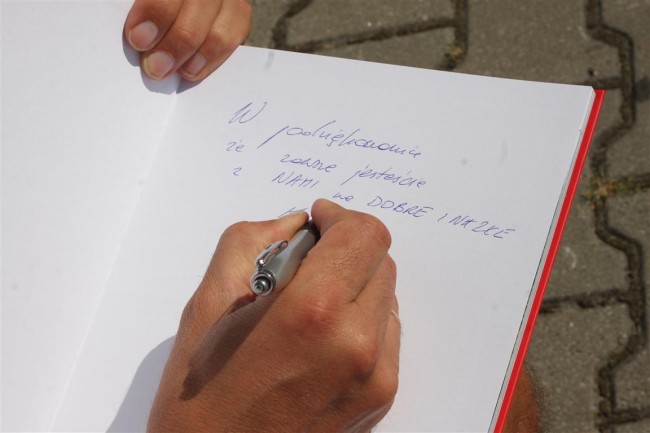 W podziękowaniu
że zawsze jesteście
z NAMI na DOBRE I NA ZŁE